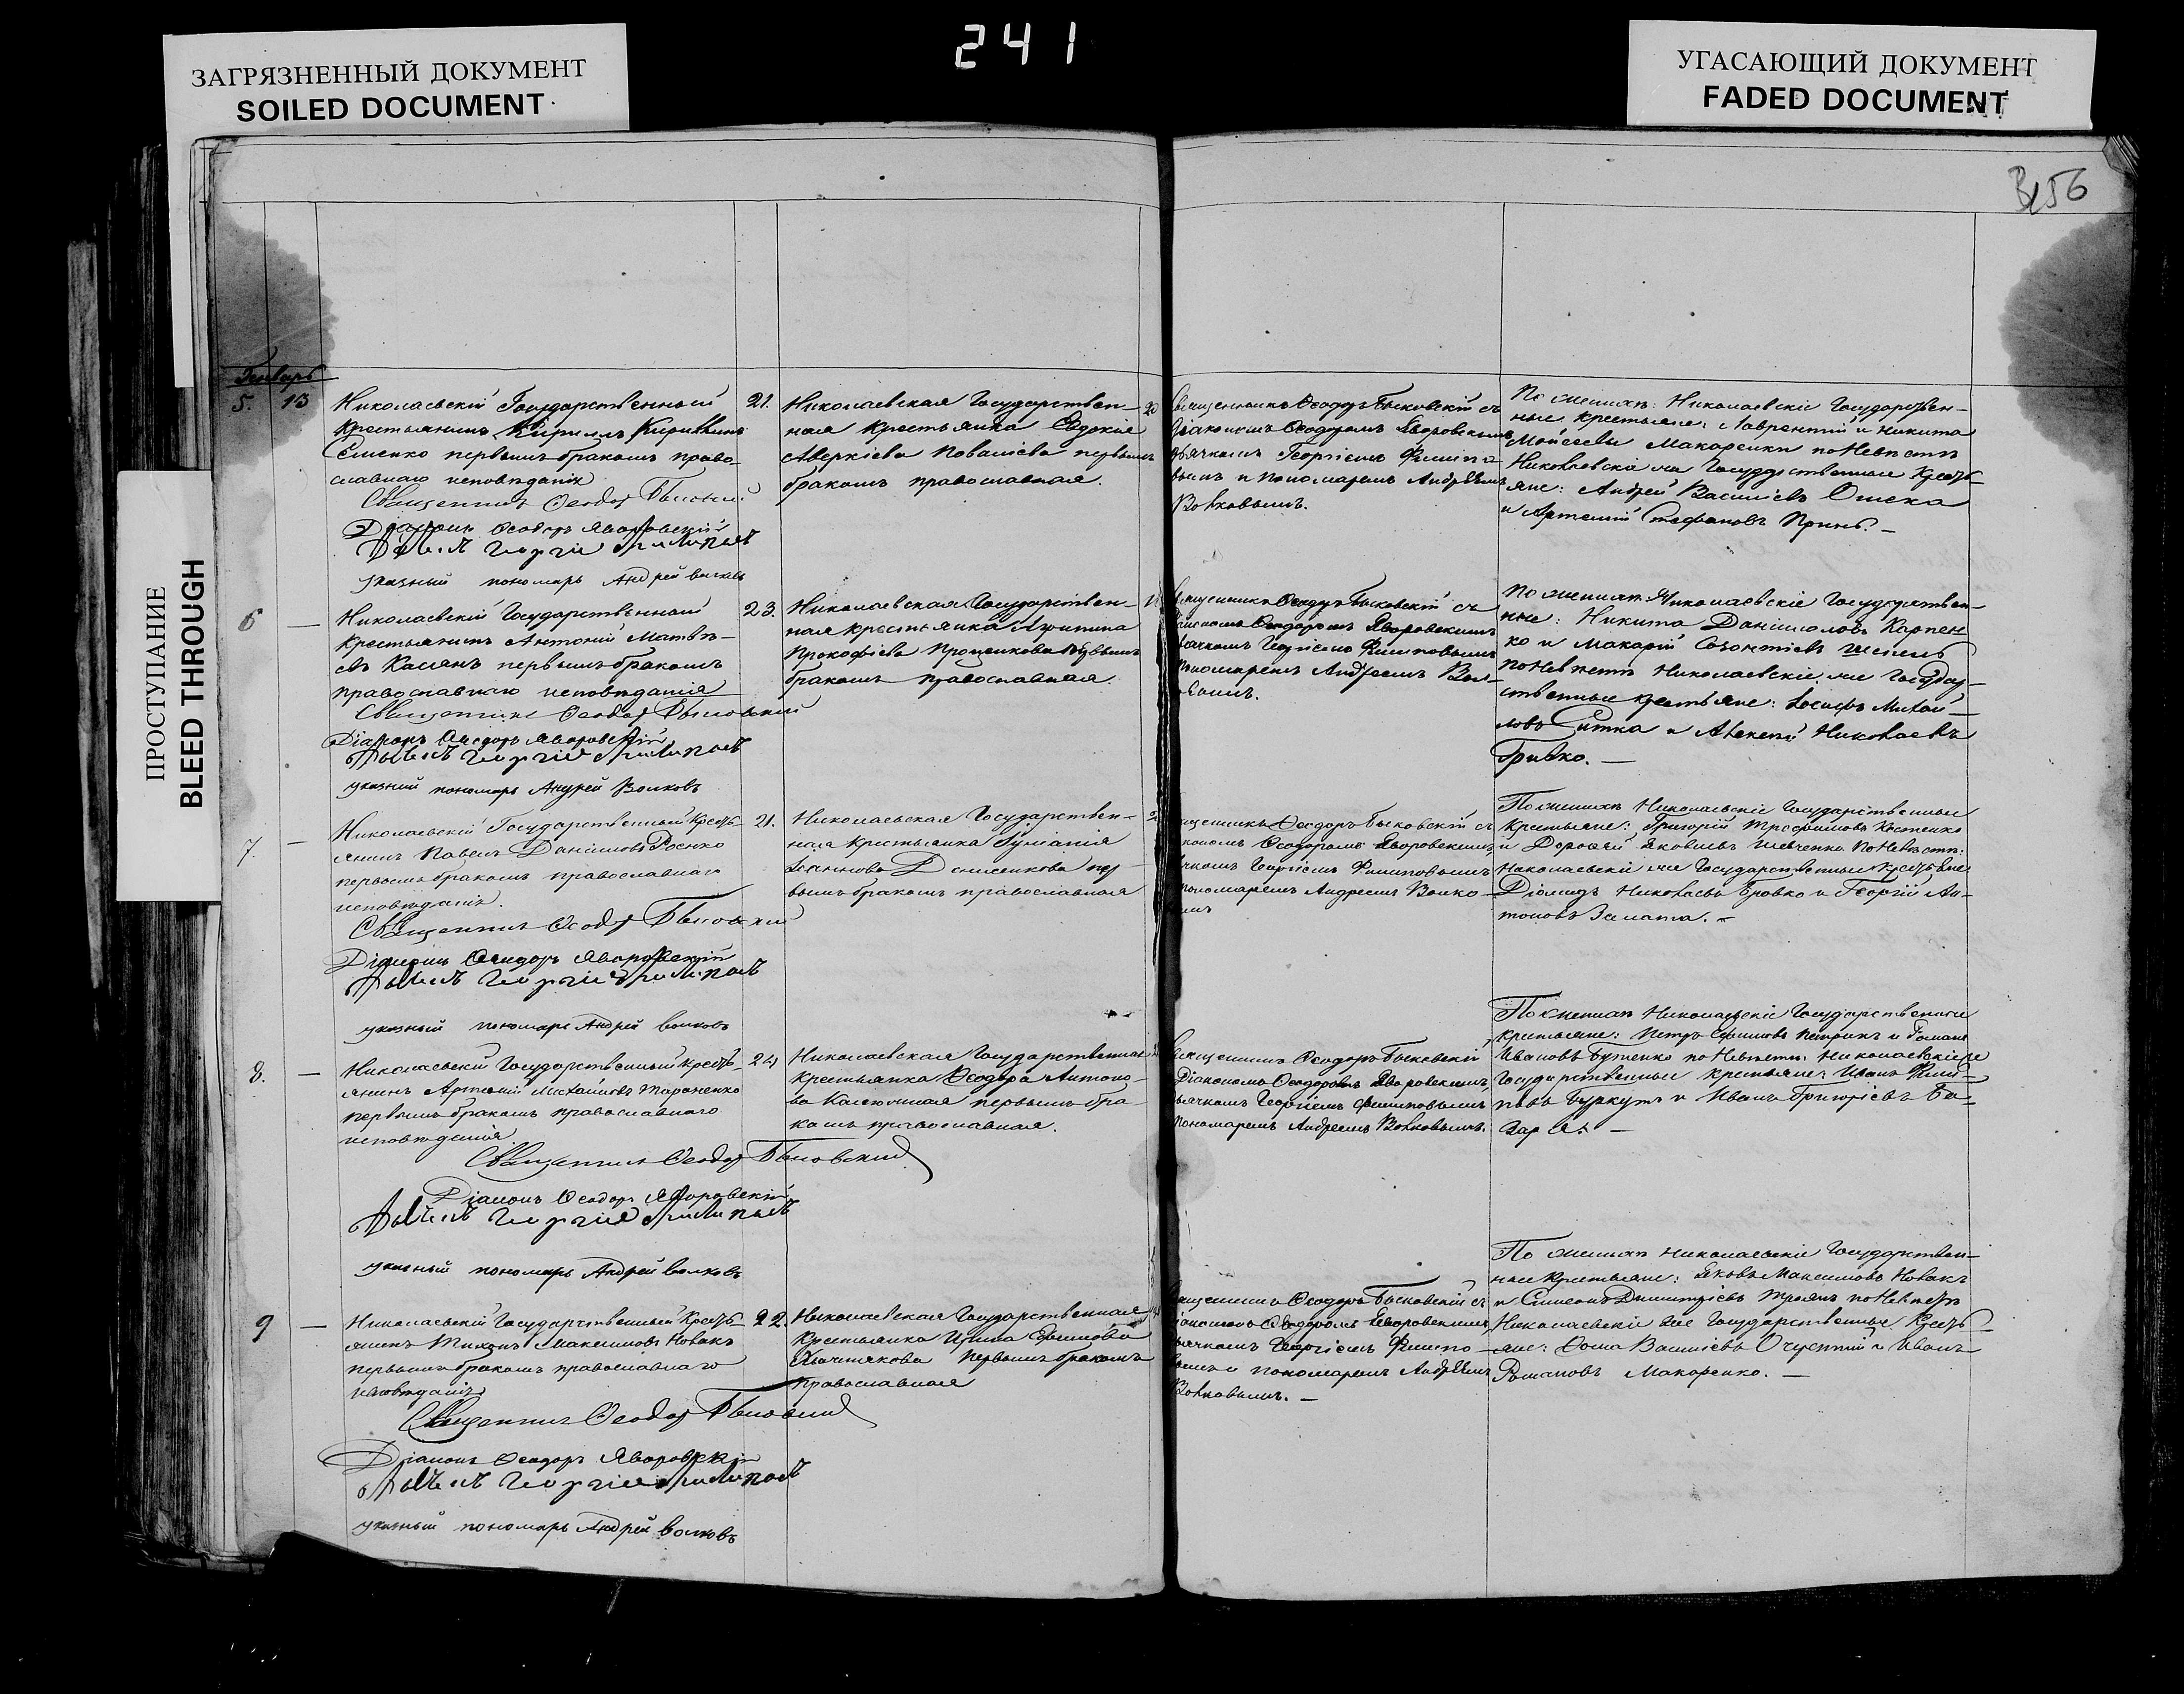 241
ЗАГРЯЗНЕННЫЙ ДОКУМЕНТ
SOILED DOCUMENT
УГАСАЮЩИЙ ДОКУМЕНТ
FADED DOCUMENT
ПРОСТУПАНИЕ
BLEED THROUGH
Январь
5. 13
Николаевскій Государственный
крестьянинъ Кириллъ
Семенко первымъ бракомъ право-
славнаго исповѣданія
Священникъ Ѳеодоръ Быковскій
Діаконъ Ѳеодоръ Яворовскій
указный пономарь Андрей Волковъ
21.
Николаевская Государствен-
ная крестьянка Евдокія
Аверкіева первымъ
бракомъ православная.
20
Священникъ Ѳеодоръ Быковскій съ
Діакономъ Ѳеодоромъ Яворовскимъ
дьячкомъ Георгіемъ Филипо-
вымъ и пономаремъ Андреемъ
Волковымъ.
По женихѣ: Николаевскіе Государствен-
ные крестьяне: Лаврентій и Никита
Моисеевы Макаренки по Невѣстѣ
Николаевскіе же Государственные кресть-
яне: Андрей Василіевъ
и Артемій Стефановъ
6 —
Николаевскій Государственный
крестьянинъ Антоній Матвѣ-
евъ Касянъ первымъ бракомъ
православнаго исповѣданія
Священникъ Ѳеодоръ Быковскій
Діаконъ Ѳеодоръ Яворовскій
указный пономарь Андрей Волковъ
23.
Николаевская Государствен-
ная крестьянка Агрипина
Прокофіева Проценкова первымъ
бракомъ православная.
Священникъ Ѳеодоръ Быковскій съ
Діакономъ Ѳеодоромъ Яворовскимъ
дьячкомъ Георгіемъ Филиповымъ
пономаремъ Андреемъ Вол-
ковымъ.
По женихѣ: Николаевскіе Государствен-
ные: Никита Даніиловъ Карпен-
ко и Макарій Созонтіевъ
по Невѣстѣ Николаевскіе же Государ-
ственные крестьяне: Іосифъ Михай-
ловъ Ситка и Алексѣй Николаевъ
Гривко. —
7. —
Николаевскій Государственный кресть-
янинъ Павелъ Даніиловъ
первымъ бракомъ православнаго
исповѣданія.
Священникъ Ѳеодоръ Быковскій
Діаконъ Ѳеодоръ Яворовскій
указный пономарь Андрей Волковъ
21.
Николаевская Государствен-
ная крестьянка
Денисенкова пер-
вымъ бракомъ православная
Священникъ Ѳеодоръ Быковскій съ
Діакономъ Ѳеодоромъ Яворовскимъ
дьячкомъ Георгіемъ Филиповымъ
пономаремъ Андреемъ Волко-
вымъ
По женихѣ Николаевскіе Государственные
крестьяне: Григорій Трофимовъ
и Дороѳей Яковлевъ Шевченко по Невѣстѣ:
Николаевскіе же Государственные крестьяне
Діомидъ Николаевъ и Георгій Ан-
тоновъ
8. —
Николаевскій Государственный кресть-
янинъ Артемій Михайловъ Тараненко
первымъ бракомъ православнаго
исповѣданія
Священникъ Ѳеодоръ Быковскій
Діаконъ Ѳеодоръ Яворовскій
указный пономарь Андрей Волковъ
24
Николаевская Государственная
крестьянка Ѳеодора Антоно-
ва первымъ бра-
комъ православная.
Священникъ Ѳеодоръ Быковскій
Діакономъ Ѳеодоромъ Яворовскимъ,
дьячкомъ Георгіемъ Филиповымъ
пономаремъ Андреемъ Волковымъ.
По женихѣ Николаевскіе Государственные
крестьяне: Петръ Ефимовъ Петрикъ и Романъ
Ивановъ Бутенко по Невѣстѣ: Николаевскіе же
Государственные крестьяне: Иванъ Фили-
повъ Буркутъ и Иванъ Григоріевъ
9 —
Николаевскій Государственный кресть-
янинъ Тихонъ Максимовъ Новакъ
первымъ бракомъ православнаго
исповѣданія
Священникъ Ѳеодоръ Быковскій
Діаконъ Ѳеодоръ Яворовскій
указный пономарь Андрей Волковъ
22.
Николаевская Государственная
крестьянка Ирина Ефимова
первымъ бракомъ
православная
Священникъ Ѳеодоръ Быковскій съ
Діакономъ Ѳеодоромъ Яворовскимъ,
дьячкомъ Георгіемъ Филипо-
вымъ и пономаремъ Андреемъ
Волковымъ. —
По женихѣ Николаевскіе Государствен-
ные крестьяне: Яковъ Максимовъ Новакъ
и Симеонъ Димитріевъ Троянъ по Невѣстѣ
Николаевскіе же Государственные кресть-
яне: Ѳома Василіевъ и Иванъ
Романовъ Макаренко. —